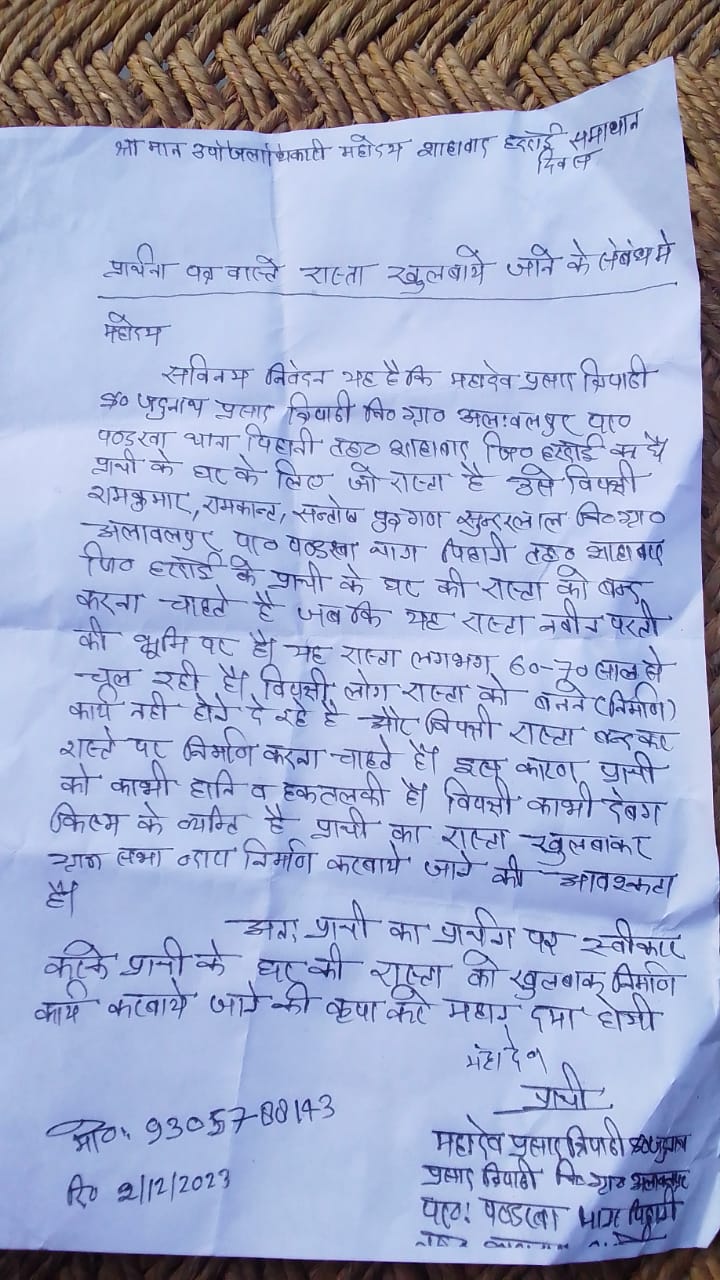 श्री मान उपोजिलाधिकारी महोदय शाहाबाद हरदोई समाधान
दिवस
प्रार्थना पत्र वास्ते रास्ता खुलबाये जाने के संबंध मे
महोदय
सविनय निवेदन यह है कि महादेव प्रसाद त्रिपाठी
S/o जदुनाथ प्रसाद त्रिपाठी नि० ग्रा० अलावलपुर पो०
पण्डरवा थाना पिहानी तह० शाहाबाद जि० हरदोई का है
प्रार्थी के घर के लिए जो रास्ता है उसे विपक्षी
रामकुमार, रामकान्त, सन्तोष पुत्रगण सुन्दरलाल नि० ग्रा०
अलावलपुर पो० पण्डरवा थाना पिहानी तह० शाहाबाद
जि० हरदोई के प्रार्थी के घर की रास्ता को बन्द
करना चाहते है जब कि यह रास्ता नवीन परती
की भूमि पर है। यह रास्ता लगभग 60-70 साल से
चल रही है। विपक्षी लोग रास्ता को बनने (निर्माण)
कार्य नही होने दे रहे है और विपक्षी रास्ता बन्द कर
रास्ते पर निर्माण करना चाहते है। इस कारण प्रार्थी
को काभी हानि व हकतलकी है। विपक्षी काभी देबंग
किस्म के व्यक्ति है प्रार्थी का रास्ता खुलबाकर
ग्राम सभा द्वारा निर्माण करबाये जाने की आवश्कता
है।
अतः प्रार्थी का प्रार्थना पत्र स्वीकार
करके प्रार्थी के घर की रास्ता को खुलबाकर निर्माण
कार्य करबाये जाने की कृपा करे महान दया होगी
महादेव
प्रार्थी
महादेव प्रसाद त्रिपाठी S/o जदुनाथ
प्रसाद त्रिपाठी नि० ग्रा० अलावलपुर
पो०: पण्डरवा थाना पिहानी
मो०: 93057-88143
दि० 2/12/2023